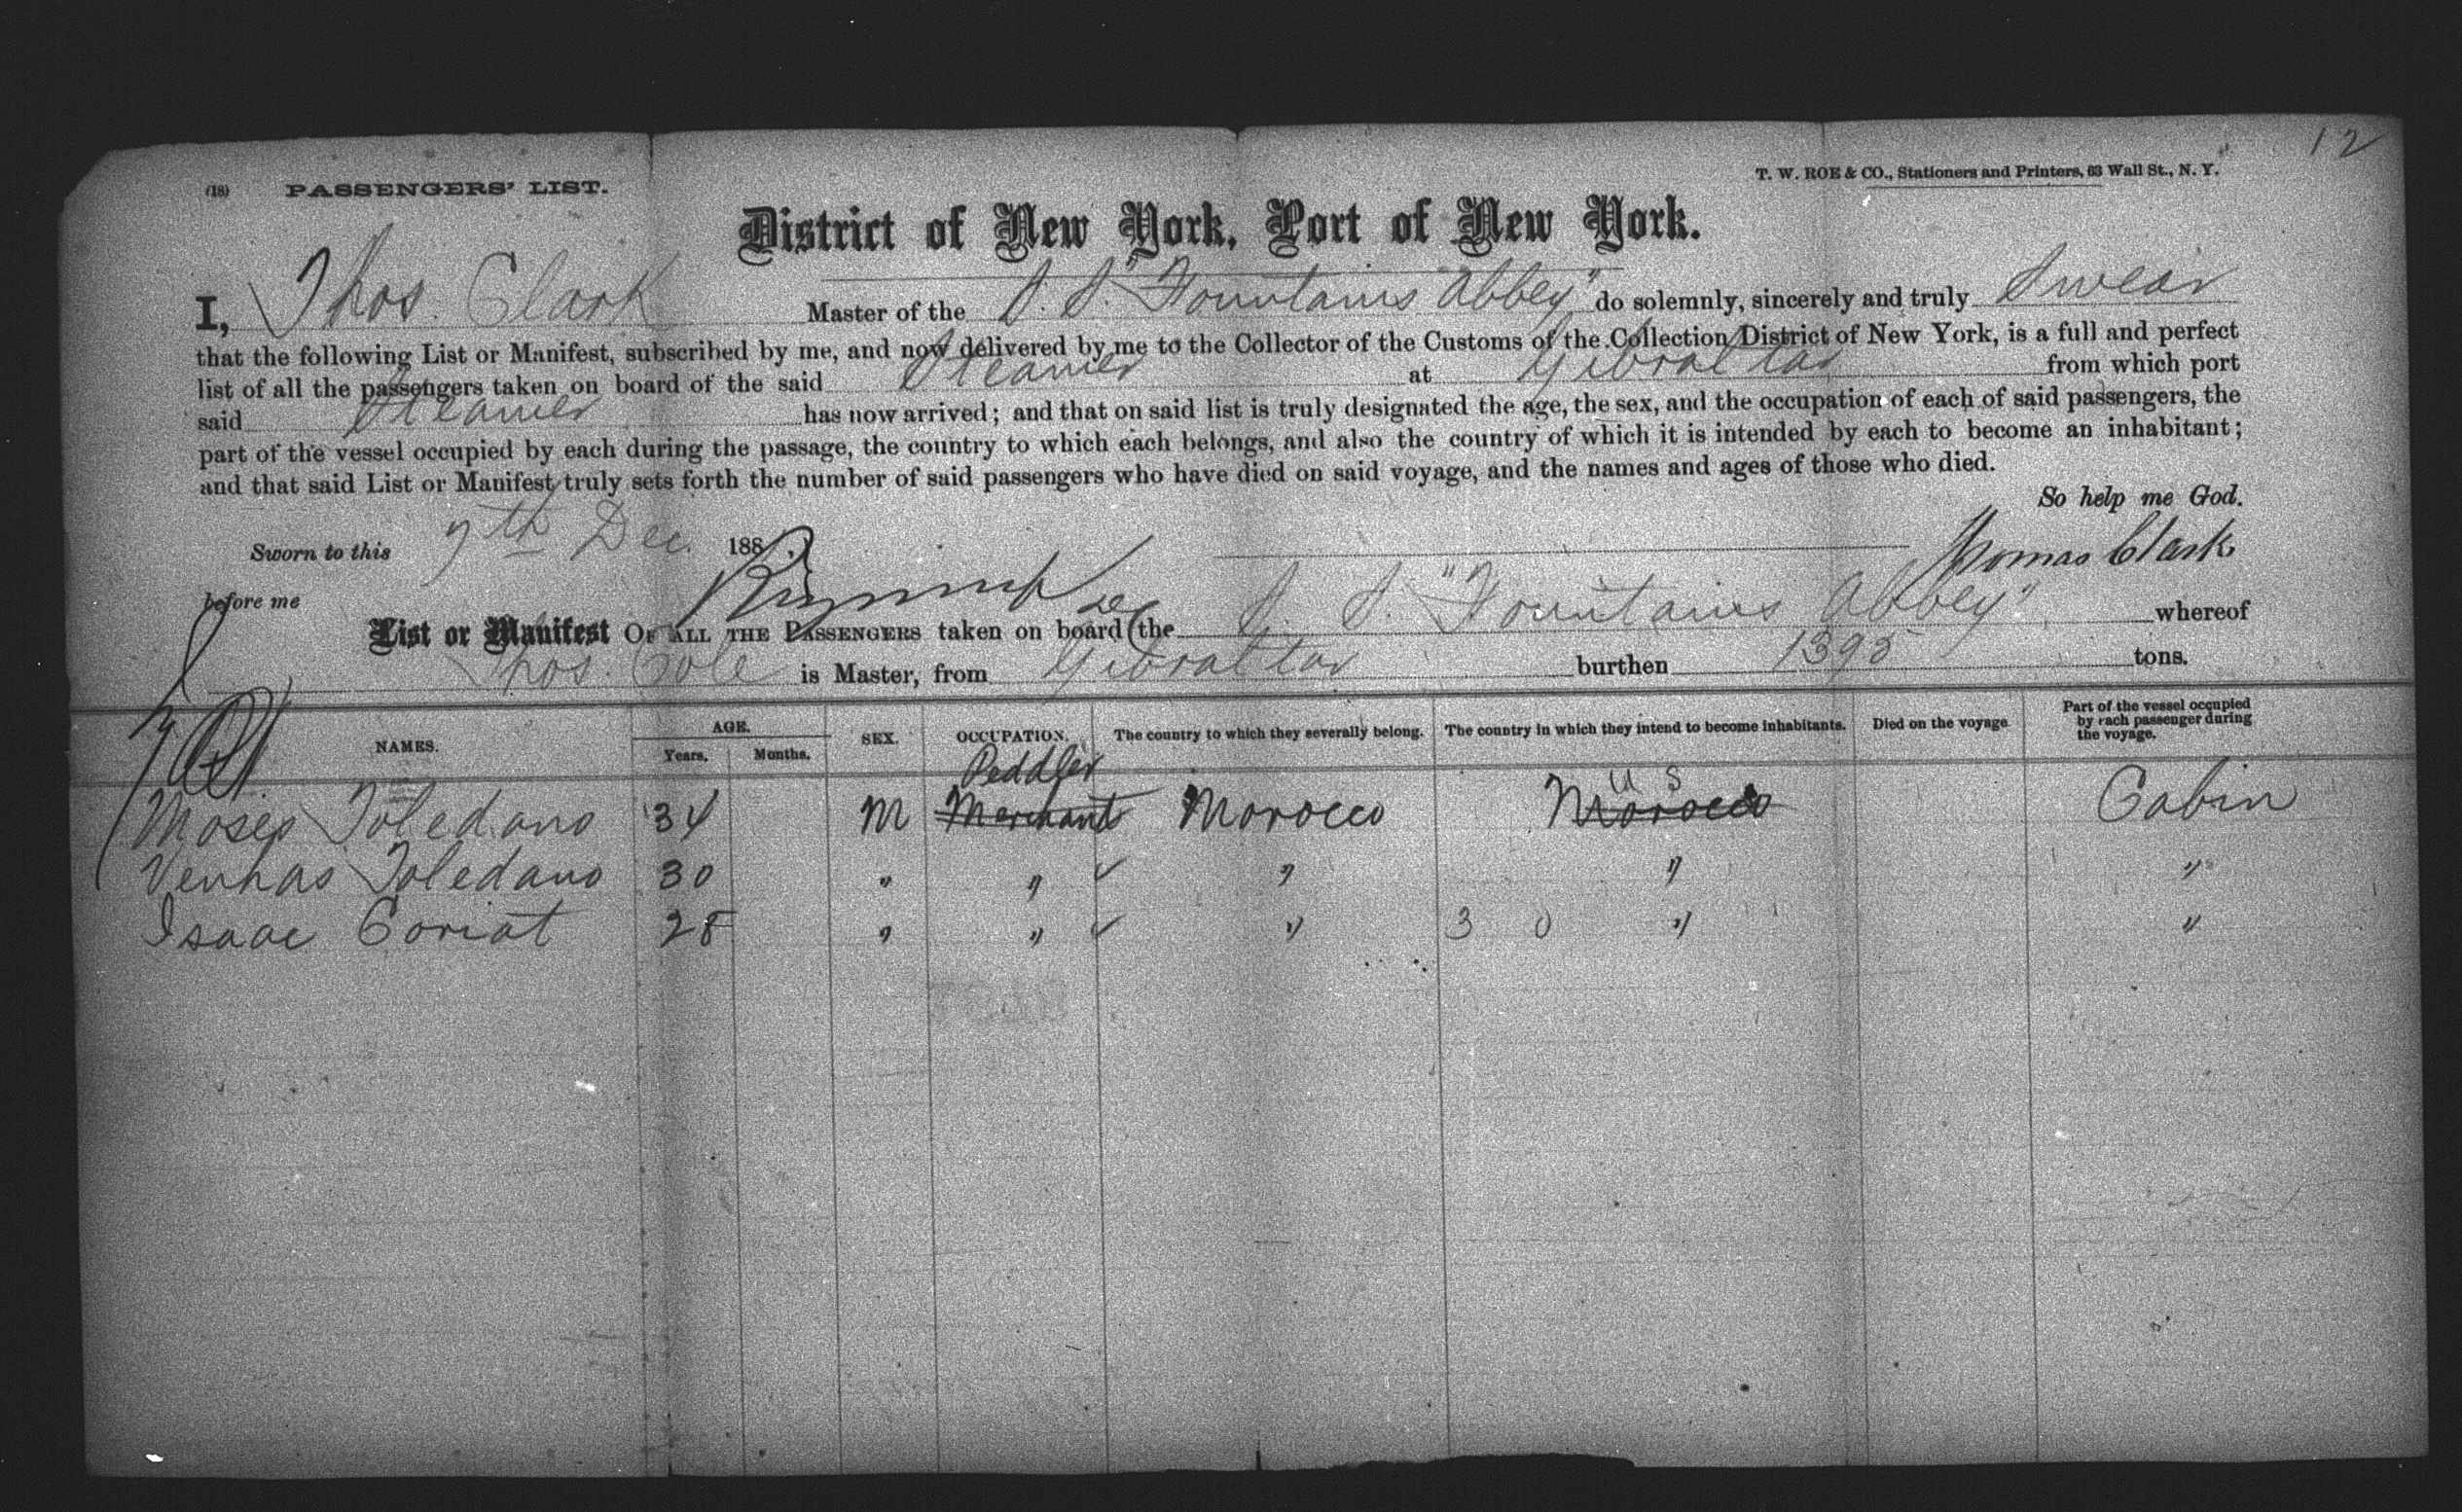 12
(18) PASSENGERS' LIST.
T. W. ROE & CO., Stationers and Printers, 63 Wall St., N. Y.
District of New York, Port of New York.
I, Thos. Clark Master of the S. S. "Fountains Abbey" do solemnly, sincerely and truly Swear
that the following List or Manifest, subscribed by me, and now delivered by me to the Collector of the Customs of the Collection District of New York, is a full and perfect
list of all the passengers taken on board of the said Steamer at Gibraltar from which port
said Steamer has now arrived; and that on said list is truly designated the age, the sex, and the occupation of each of said passengers, the
part of the vessel occupied by each during the passage, the country to which each belongs, and also the country of which it is intended by each to become an inhabitant;
and that said List or Manifest truly sets forth the number of said passengers who have died on said voyage, and the names and ages of those who died.
So help me God.
Sworn to this 7th Dec. 188 Thomas Clark
before me
List or Manifest OF ALL THE PASSENGERS taken on board the S. S. "Fountains Abbey" whereof
Thos. Cole is Master, from Gibraltar burthen 1395 tons.
NAMES. AGE. Years. Months. SEX. OCCUPATION. The country to which they severally belong. The country in which they intend to become inhabitants. Died on the voyage. Part of the vessel occupied by each passenger during the voyage.
Peddler U S
Moses Toledano 34 M Merchant Morocco Morocco Cabin
Venhas Toledano 30 " " " " "
Isaac Coriat 28 " " " 3 0 " "